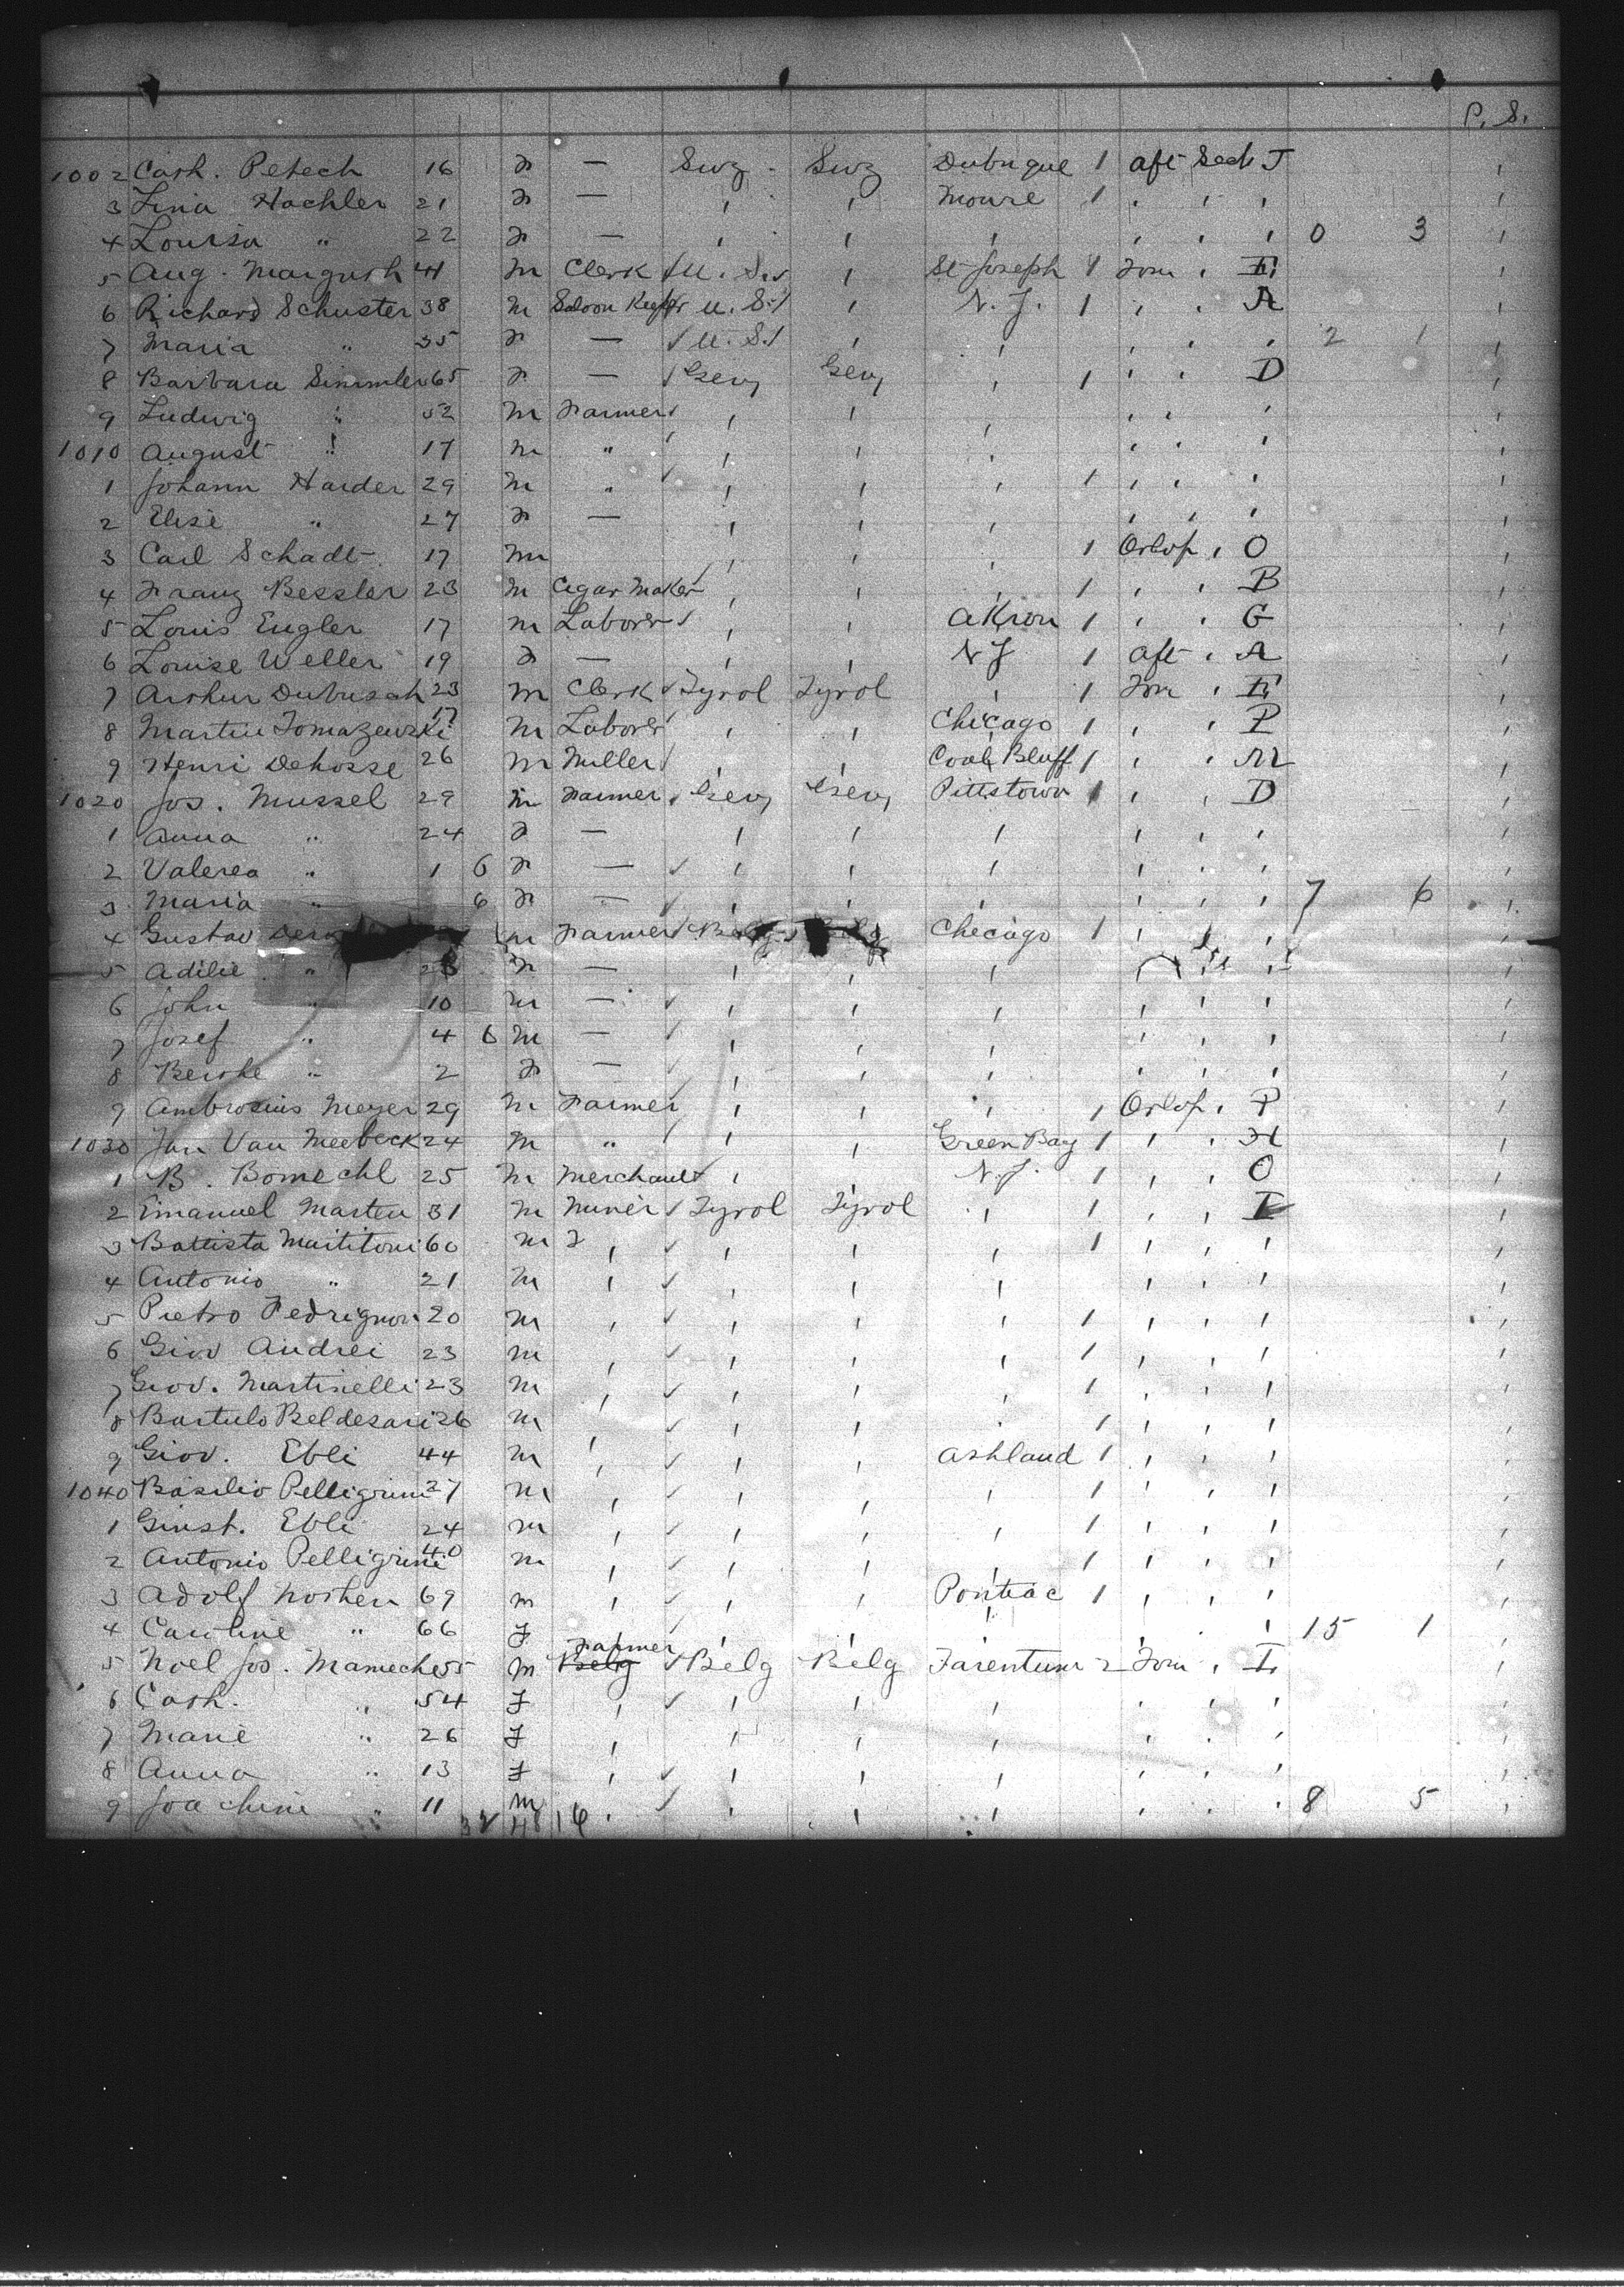 P. S.
1002 Cath. Petech 16 F — Swz. Swz Dubuque 1 aft Sect J '
3 Lina Hachler 21 F — ' ' Moure 1 ' ' ' '
4 Louisa " 22 F — ' ' ' ' ' ' 0 3 '
5 Aug. Margush 41 M Clerk / U. S. ' St Joseph 1 For ' E '
6 Richard Schuster 38 M Saloon Keeper U. S. ' N. J. 1 ' ' A '
7 Maria " 35 F — / U. S. ' ' ' ' ' 2 1 '
8 Barbara Simmler 65 F — / Gery Gery ' 1 ' ' D '
9 Ludwig " 52 M Farmer / ' ' ' ' ' ' '
1010 August " 17 M " ' ' ' ' ' '
1 Johann Harder 29 M " / ' ' ' 1 ' ' ' '
2 Elise " 27 F — ' ' ' ' ' ' '
3 Carl Schadt 17 M ' ' ' 1 Orlop ' O '
4 Franz Bessler 23 M Cigar Maker ' ' ' 1 ' ' B '
5 Louis Engler 17 M Laborer / ' ' Akron 1 ' ' G '
6 Louise Weller 19 F — ' ' N J 1 aft ' A '
7 Arthur Dubusch 23 M Clerk ✓ Tyrol Tyrol ' 1 For ' E '
8 Martin Tomazewski 17 M Laborer ' ' Chicago 1 ' ' P '
9 Henri Dehosse 26 M Miller / ' ' Coal Bluff 1 ' ' M '
1020 Jos. Mussel 29 M Farmer / Gery Gery Pittstown 1 ' ' D '
1 Anna " 24 F — ' ' ' ' ' ' '
2 Valerea " 1 6 F — ✓ ' ' ' ' ' ' '
3 Maria " 6 F — ✓ ' ' ' ' ' ' 7 6 '
4 Gustav M Farmer / Chicago 1 ' ' '
5 Adilie " F — ' ' ' ' ' '
6 John " 10 M — ✓ ' ' ' ' ' ' '
7 Josef " 4 6 M — ✓ ' ' ' ' ' ' '
8 Berthe " 2 F — ✓ ' ' ' ' ' ' '
9 Ambrosius Meyer 29 M Farmer ' ' ' 1 Orlop ' P '
1030 Jan Van Meebeck 24 M " / ' ' Green Bay 1 ' ' H '
1 B. Bomechl 25 M Merchant / ' ' N. J. 1 ' ' O '
2 Emanuel Marten 31 M Miner ✓ Tyrol Tyrol ' 1 ' '
3 Battista Maititoni 60 M ' ✓ ' ' ' 1 ' ' ' '
4 Antonio " 21 M ' ✓ ' ' ' ' ' ' '
5 Pietro Fedrignon 20 M ' ✓ ' ' ' 1 ' ' ' '
6 Giov Andrei 23 M ' ✓ ' ' ' 1 ' ' ' '
7 Giov. Martinelli 23 M ' ✓ ' ' ' 1 ' ' ' '
8 Bartulo Beldesari 26 M ' ✓ ' ' ' 1 ' ' ' '
9 Giov. Ebli 44 M ' ✓ ' ' Ashland 1 ' ' ' '
1040 Basilio Pelligrini 27 M ' ✓ ' ' ' 1 ' ' ' '
1 Ginst. Ebli 24 M ' ✓ ' ' ' 1 ' ' ' '
2 Antonio Pelligrini 40 M ' ✓ ' ' ' 1 ' ' ' '
3 Adolf Nothen 69 M ' ✓ ' ' Pontiac 1 ' ' ' '
4 Caroline " 66 F ✓ ' ' ' ' ' ' 15 1 '
5 Noel Jos. Mameche 55 M Belg Farmer ✓ Belg Belg Tarentum 2 For ' I '
6 Cath. " 54 F ' ✓ ' ' ' ' ' ' '
7 Marie " 26 F ' ' ' ' ' ' ' '
8 Anna " 13 F ' ✓ ' ' ' ' ' ' '
9 Joachim " 11 M ' ✓ ' ' ' ' ' ' 8 5 '
32 48 16